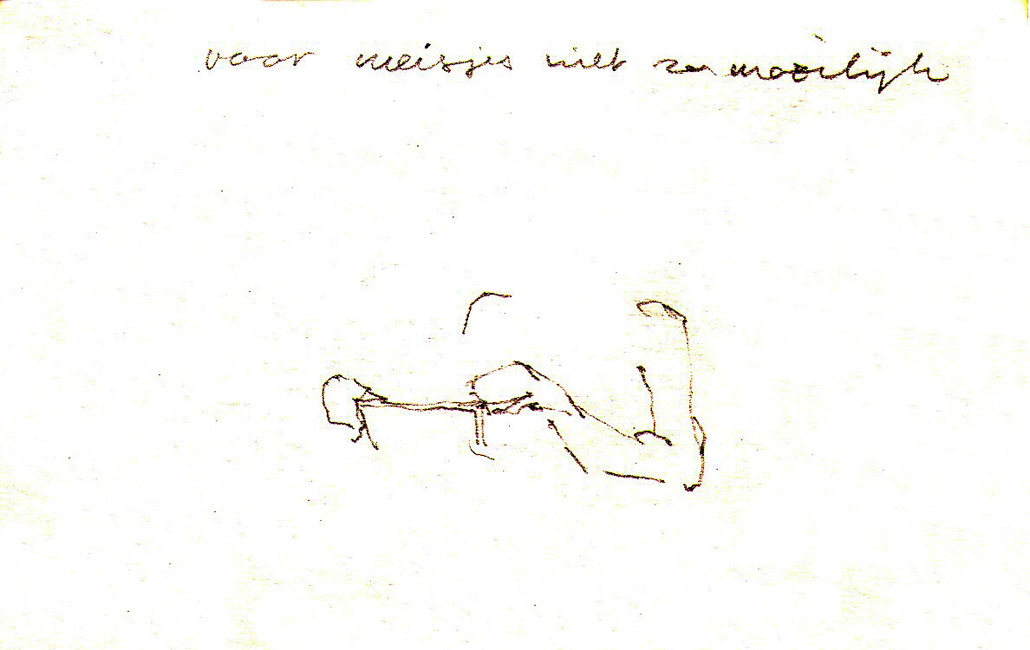 voor meisjes niet zo moeilijk